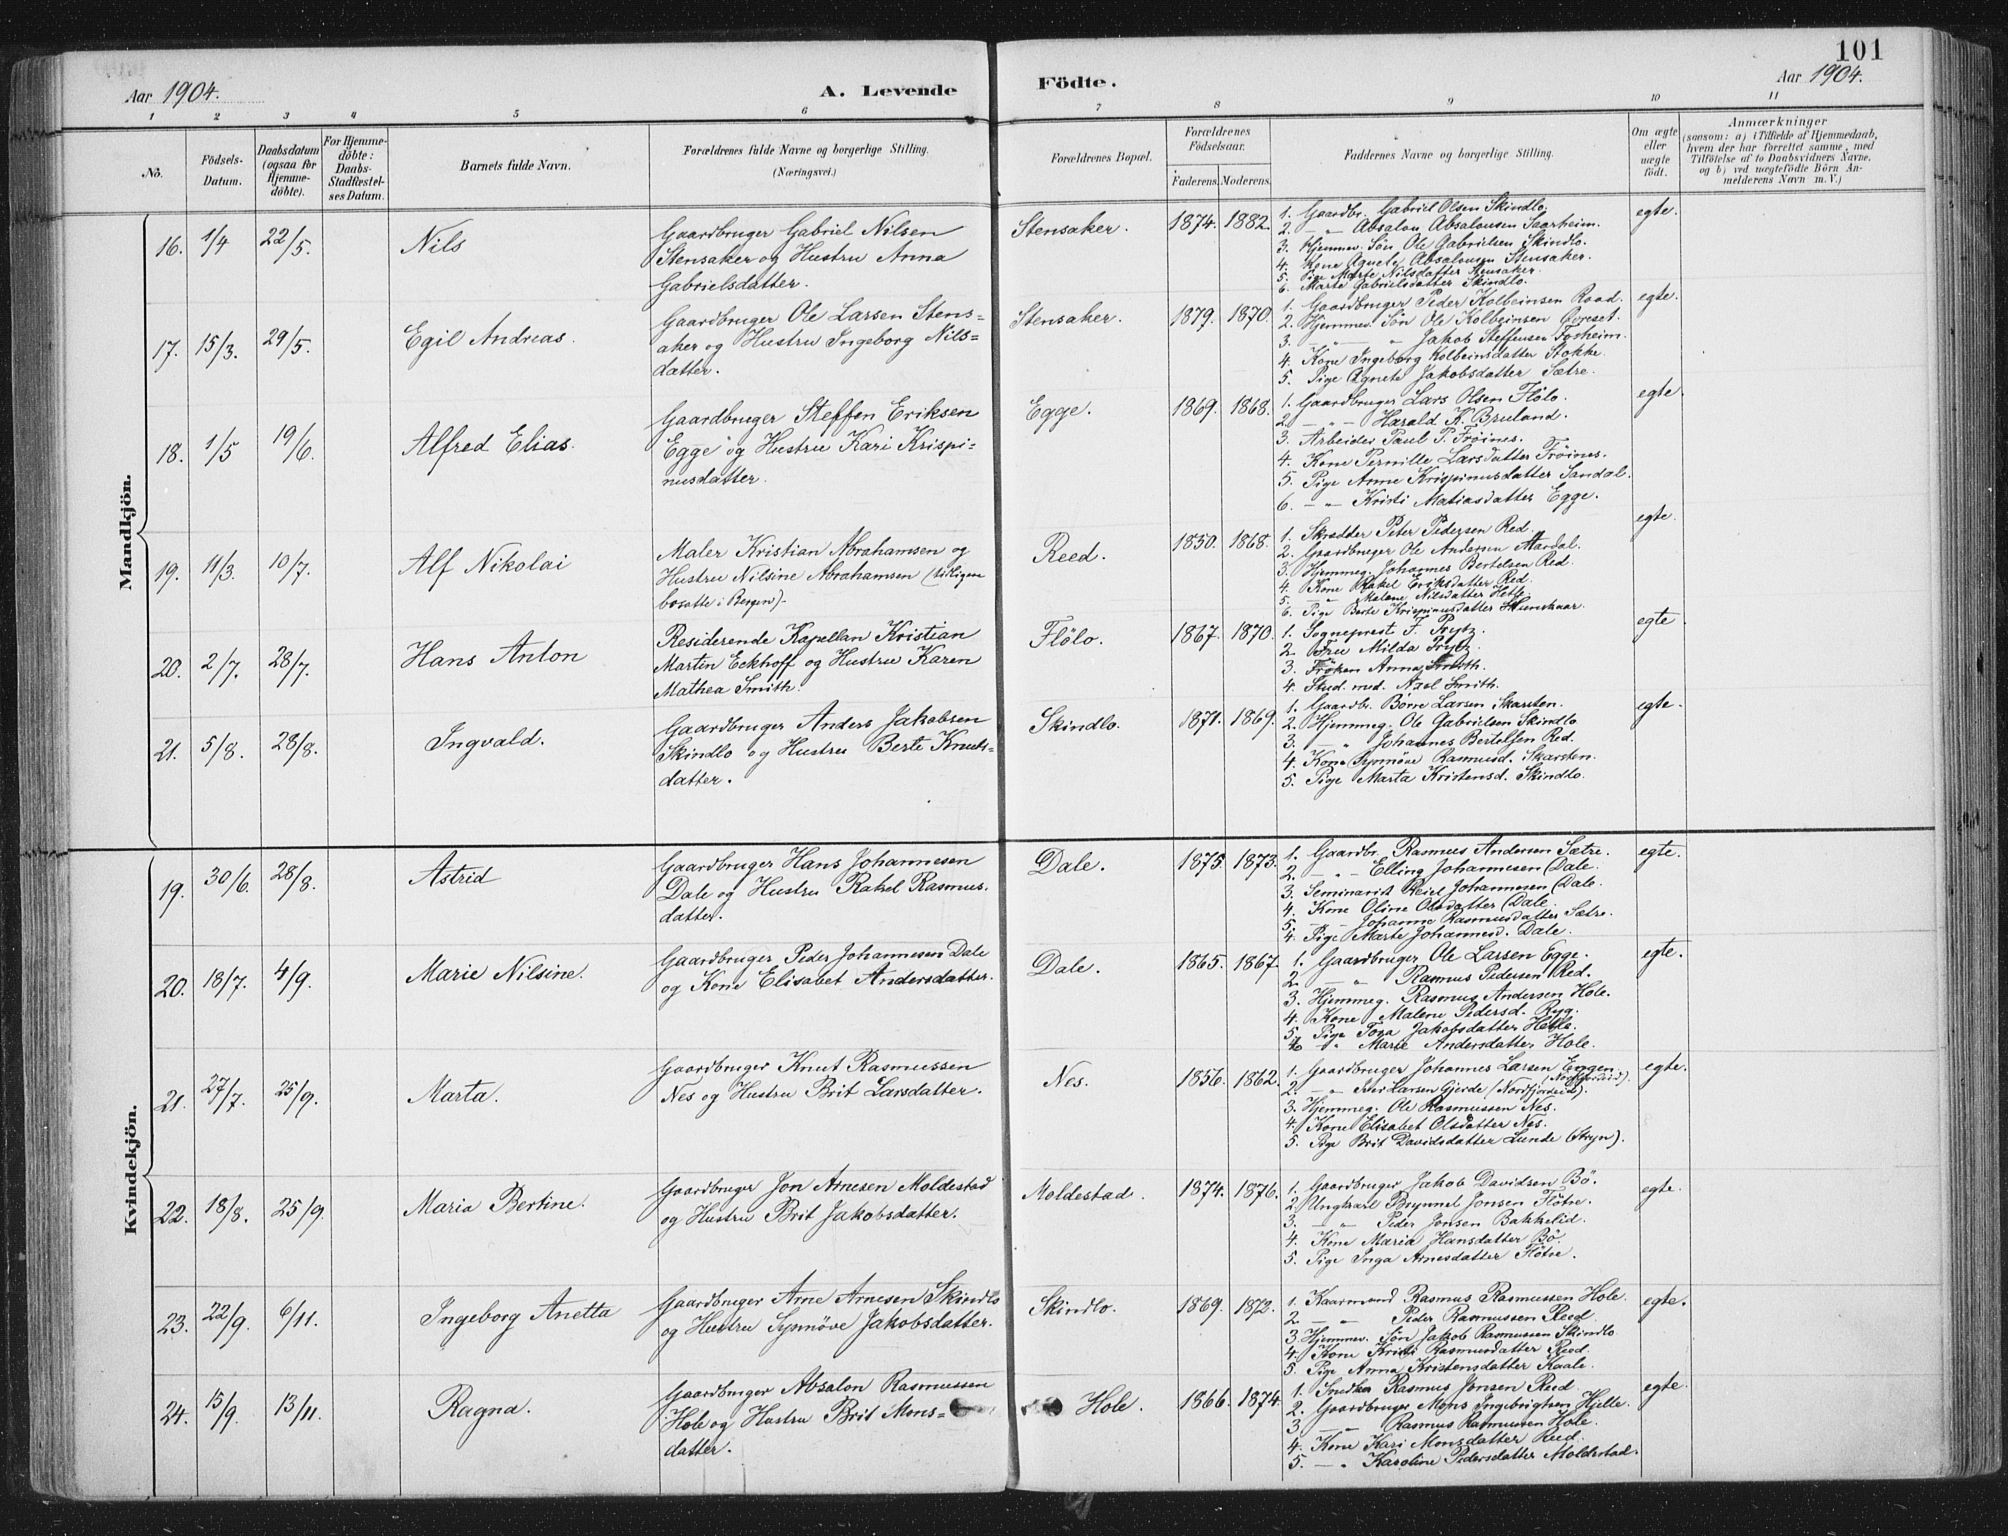 101
Aar 1904.
A. Levende
Födte.
Aar 1904.
1 2 3 4 5 6 7 8 9 10 11
No.
Födsels-
Datum.
Daabsdatum
(ogsaa for
Hjemme-
döbte).
For Hjemme-
döbte:
Daabs-
Stadfæstel-
ses Datum.
Barnets fulde Navn.
Forældrenes fulde Navne og borgerlige Stilling.
(Næringsvei.)
Forældrenes Bopæl.
Forældrenes
Födselsaar.
Faderens. Moderens.
Faddernes Navne og borgerlige Stilling.
Om ægte
eller
uægte
födt.
Anmærkninger
(saasom: a) i Tilfælde af Hjemmedaab,
hvem der har forrettet samme, med
Tilföielse af to Daabsvidners Navne,
og b) ved uægtefödte Börn An-
melderens Navn m. V.)
Mandkjön.
16. 1/4 22/5. Nils
Gaardbruger Gabriel Nilsen
Stensaker og Hustru Anna
Gabrielsdatter.
Stensaker. 1874. 1882.
1. Gaardbr. Gabriel Olsen Skindlo.
2. " Absalon Absalonsen Saarheim.
3. Hjemmev. Sön Ole Gabrielsen Skindlo.
4. Kone Agnete Absalonsen Stensaker.
5. Pige Marte Nilsdatter Stensaker.
6. Marte Gabrielsdatter Skindlo.
egte.
17. 15/3. 29/5. Egil Andreas.
Gaardbruger Ole Larsen Stens-
aker og Hustru Ingeborg Nils-
datter.
Stensaker. 1879. 1870.
1. Gaardbruger Peder Kolbeinsen Raad.
2. Hjemmev. Sön Ole Kolbeinsen
3. " " Jakob Steffensen
4. Kone Ingeborg Kolbeinsdatter Stokke.
5. Pige Agnete Jakobsdatter Sætre.
egte.
18. 1/5 19/6. Alfred Elias.
Gaardbruger Steffen Eriksen
Egge og Hustru Kari Krispi-
nusdatter.
Egge. 1869. 1868.
1. Gaardbruger Lars Olsen Flölo.
2 " " Harald K. Bruland.
3. Arbeider Paul P. Tröines.
4. Kone Pernille Larsdatter Tröines.
5. Pige Anne Krispinusdatter Sandal.
6. " Kristi Matiasdatter Egge.
egte.
19. 11/3. 10/7. Alf Nikolai
Maler Kristian Abrahamsen og
Hustru Nilsine Abrahamsen (tidligere
bosatte i Bergen).
Reed. 1850. 1868.
1. Skrædder Peter Pedersen Red.
2. Gaardbruger Ole Andersen Aardal.
3. Hjemmeg. Johannes Bertelsen Red.
4. Kone Rakel Eriksdatter Red.
5. " Malene Nilsdatter Hetle.
6. Pige Berte Krispinusdatter
egte.
20. 2/7. 28/7. Hans Anton
Residerende Kapellan Kristian
Martin Eckhoff og Hustru Karen
Mathea Smith.
Flölo. 1867. 1870.
1. Sogneprest F. Prytz.
2. Frue Milda Prytz.
3. Fröken Anna Smith.
4. Stud. med. Axel Smith.
egte
21. 5/8. 28/8. Ingvald.
Gaardbruger Anders Jakobsen
Skindlo og Hustru Berte Knuts-
datter.
Skindlo. 1871. 1869.
1. Gaardbr. Börre Larsen Skarsten.
2. Hjemmeg. Ole Gabrielsen Skindlo
3. " Johannes Bertelsen Red.
4. Kone Synnöve Rasmusd. Skarsten.
5. Pige Marta Kristensd. Skindlo.
egte.
Kvindekjön.
19. 30/6. 28/8. Astrid
Gaardbruger Hans Johannesen
Dale og Hustru Rakel Rasmus.
datter.
Dale. 1875. 1873.
1. Gaardbr. Rasmus Andersen Sætre.
2. " - Elling Johannesen Dale.
3. Seminarist Reiel Johannesen Dale.
4. Kone Oline Olsdatter Dale.
5. " Johanne Rasmusdatter Sætre.
4. Pige Marte Johannesd. Dale.
egte.
20. 18/7. 4/9. Marie Nilsine.
Gaardbruger Peder Johannesen Dale
og Kone Elisabet Andersdatter.
Dale. 1865. 1867.
1. Gaardbruger Ole Larsen Egge.
2. " Rasmus Pedersen Red.
3. Hjemmeg. Rasmus Andersen Hole.
4. Kone Malene Pedersd. Ryg.
5. Pige Tora Jakobsdatter Hetle.
6 " Marie Andersdatter Hole.
egte.
21. 27/7. 25/9. Marta.
Gaardbruger Knut Rasmussen
Nes og Hustru Brit Larsdatter.
Nes. 1856. 1862.
1. Gaardbruger Johannes Larsen Enggen
2. " Iver Larsen Gjerde (Nordfjordeid).
3. Hjemmeg. Ole Rasmussen Nes.
4. Kone Elisabet Olsdatter Nes.
5. Pige Brit Davidsdatter Lunde (Stryn).
egte.
22. 18/8. 25/9. Maria Bertine.
Gaardbruger Jon Arnesen Moldestad
og Hustru Brit Jakobsdatter.
Moldestad. 1874. 1876.
1. Gaardbruger Jakob Davidsen Bö.
2. Ungkarl Brynnel Jonsen Flötre.
3. " Peder Jonsen Bakkelid.
4. Kone Maria Hansdatter Bö.
5. Pige Inga Arnesdatter Flötre.
egte.
23. 22/9. 6/11. Ingeborg Anetta
Gaardbruger Arne Arnesen Skindlo
og Hustru Synnöve Jakobsdatter.
Skindlo. 1869. 1872.
1. Kaarmand Rasmus Rasmussen Hole.
2. " Peder Rasmussen Reed.
3. Hjemmev. Sön Jakob Rasmussen Skindlo
4. Kone Kristi Rasmusdatter Reed.
5. Pige Anna Kristensdatter Kaale.
egte.
24. 15/9. 13/11. Ragna.
Gaardbruger Absalon Rasmussen
Hole og Hustru Brit Mons-
datter.
Hole. 1866. 1874.
1. Snedker Rasmus Jonsen Reed.
2. Gaardbruger Mons Ingebrigtsen Hjelle.
3. " Rasmus Rasmussen Hole.
4. Kone Kari Monsdatter Reed.
5. " Karoline Pedersdatter Moldestad.
egte.